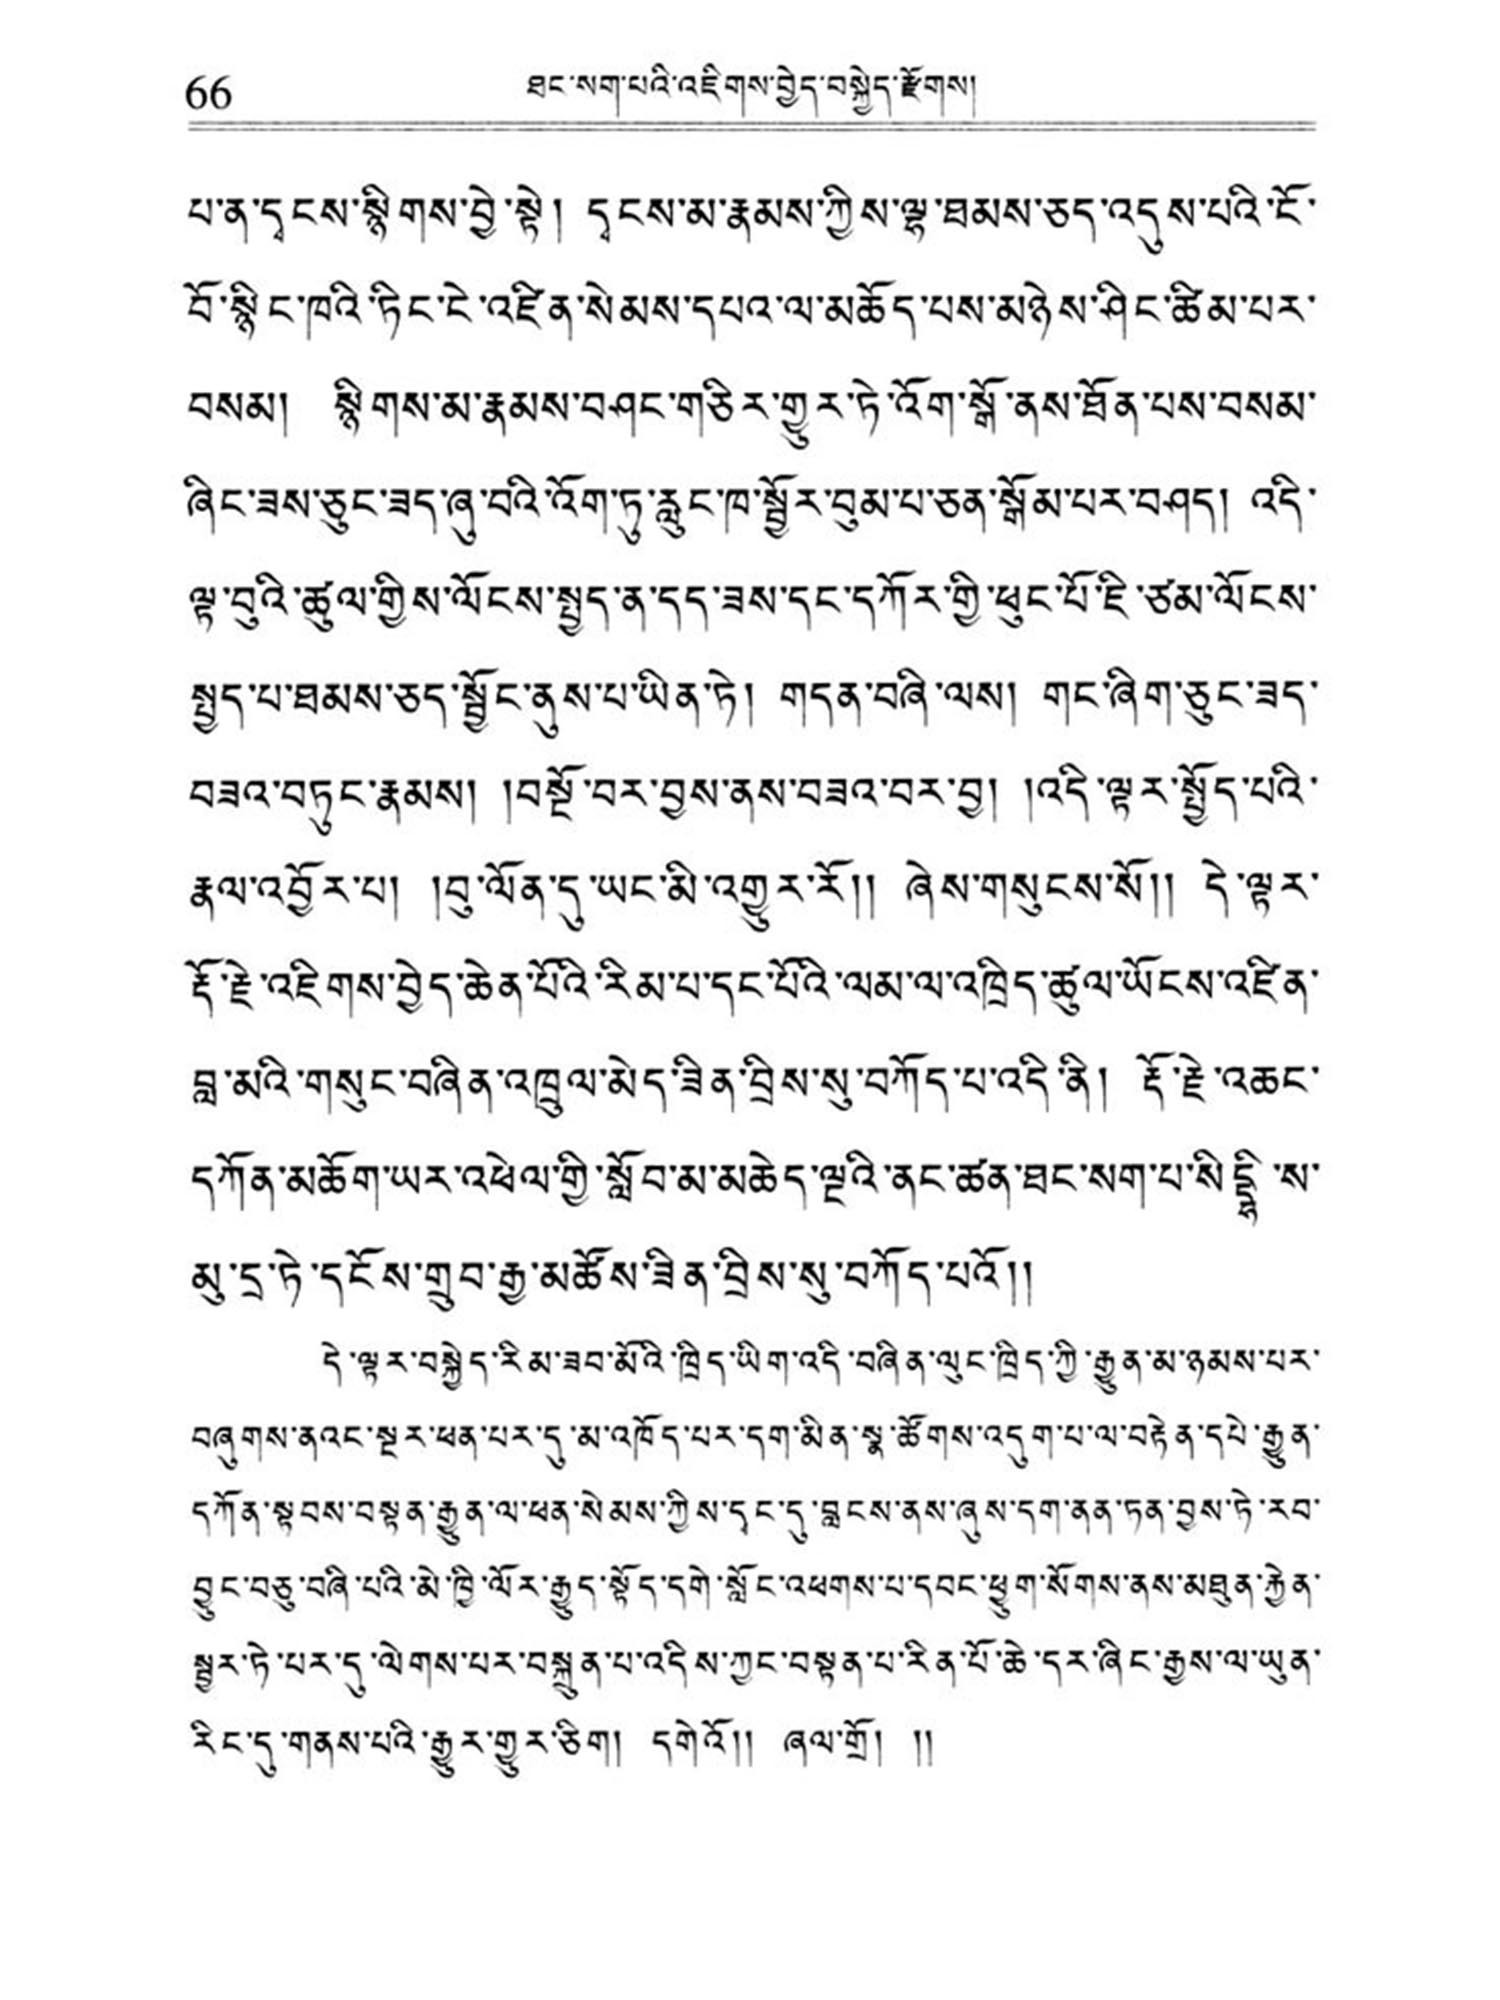 66
ཐང་སག་པའི་འཇིགས་བྱེད་བསྐྱེད་རྫོགས།
པ་ན་དྭངས་སྙིགས་བྱེ་སྟེ། དྭངས་མ་རྣམས་ཀྱིས་ལྷ་ཐམས་ཅད་འདུས་པའི་ངོ་
བོ་སྙིང་ཁའི་ཏིང་ངེ་འཛིན་སེམས་དཔའ་ལ་མཆོད་པས་མཉེས་ཤིང་ཚིམ་པར་
བསམ། སྙིགས་མ་རྣམས་བཤང་གཅིར་གྱུར་ཏེ་འོག་སྒོ་ནས་ཐོན་པས་བསམ་
ཞིང་ཟས་ཅུང་ཟད་ཞུ་བའི་འོག་ཏུ་རླུང་ཁ་སྦྱོར་བུམ་པ་ཅན་སྒོམ་པར་བཤད། འདི་
ལྟ་བུའི་ཚུལ་གྱིས་ལོངས་སྤྱད་ན་དད་ཟས་དང་དཀོར་གྱི་ཕུང་པོ་ཇི་ཙམ་ལོངས་
སྤྱད་པ་ཐམས་ཅད་སྦྱོང་ནུས་པ་ཡིན་ཏེ། གདན་བཞི་ལས། གང་ཞིག་ཅུང་ཟད་
བཟའ་བཏུང་རྣམས། །བསྔོ་བར་བྱས་ནས་བཟའ་བར་བྱ། །འདི་ལྟར་སྤྱོད་པའི་
རྣལ་འབྱོར་པ། །བུ་ལོན་དུ་ཡང་མི་འགྱུར་རོ།། ཞེས་གསུངས་སོ།། དེ་ལྟར་
རྡོ་རྗེ་འཇིགས་བྱེད་ཆེན་པོའི་རིམ་པ་དང་པོའི་ལམ་ལ་འཁྲིད་ཚུལ་ཡོངས་འཛིན་
བླ་མའི་གསུང་བཞིན་འཁྲུལ་མེད་ཟིན་བྲིས་སུ་བཀོད་པ་འདི་ནི། རྡོ་རྗེ་འཆང་
དཀོན་མཆོག་ཡར་འཕེལ་གྱི་སློབ་མ་མཆེད་ལྔའི་ནང་ཚན་ཐང་སག་པ་སིདྡྷི་ས་
མུ་དྲ་ཏེ་དངོས་གྲུབ་རྒྱ་མཚོས་ཟིན་བྲིས་སུ་བཀོད་པའོ།།
དེ་ལྟར་བསྐྱེད་རིམ་ཟབ་མོའི་ཁྲིད་ཡིག་འདི་བཞིན་ལུང་ཁྲིད་ཀྱི་རྒྱུན་མ་ཉམས་པར་
བཞུགས་ནའང་སྔར་ཕན་པར་དུ་མ་འཁོད་པར་དག་མིན་སྣ་ཚོགས་འདུག་པ་ལ་བརྟེན་དཔེ་རྒྱུན་
དཀོན་སྟབས་བསྟན་རྒྱུན་ལ་ཕན་སེམས་ཀྱིས་དྭང་དུ་བླངས་ནས་ཞུས་དག་ནན་ཏན་བྱས་ཏེ་རབ་
བྱུང་བཅུ་བཞི་པའི་མེ་ཁྱི་ལོར་རྒྱུད་སྟོད་དགེ་སློང་འཕགས་པ་དབང་ཕྱུག་སོགས་ནས་མཐུན་རྐྱེན་
སྦྱར་ཏེ་པར་དུ་ལེགས་པར་བསྐྲུན་པ་འདིས་ཀྱང་བསྟན་པ་རིན་པོ་ཆེ་དར་ཞིང་རྒྱས་ལ་ཡུན་
རིང་དུ་གནས་པའི་རྒྱུར་གྱུར་ཅིག། དགེའོ།། ཞལ་གྲོ། །།